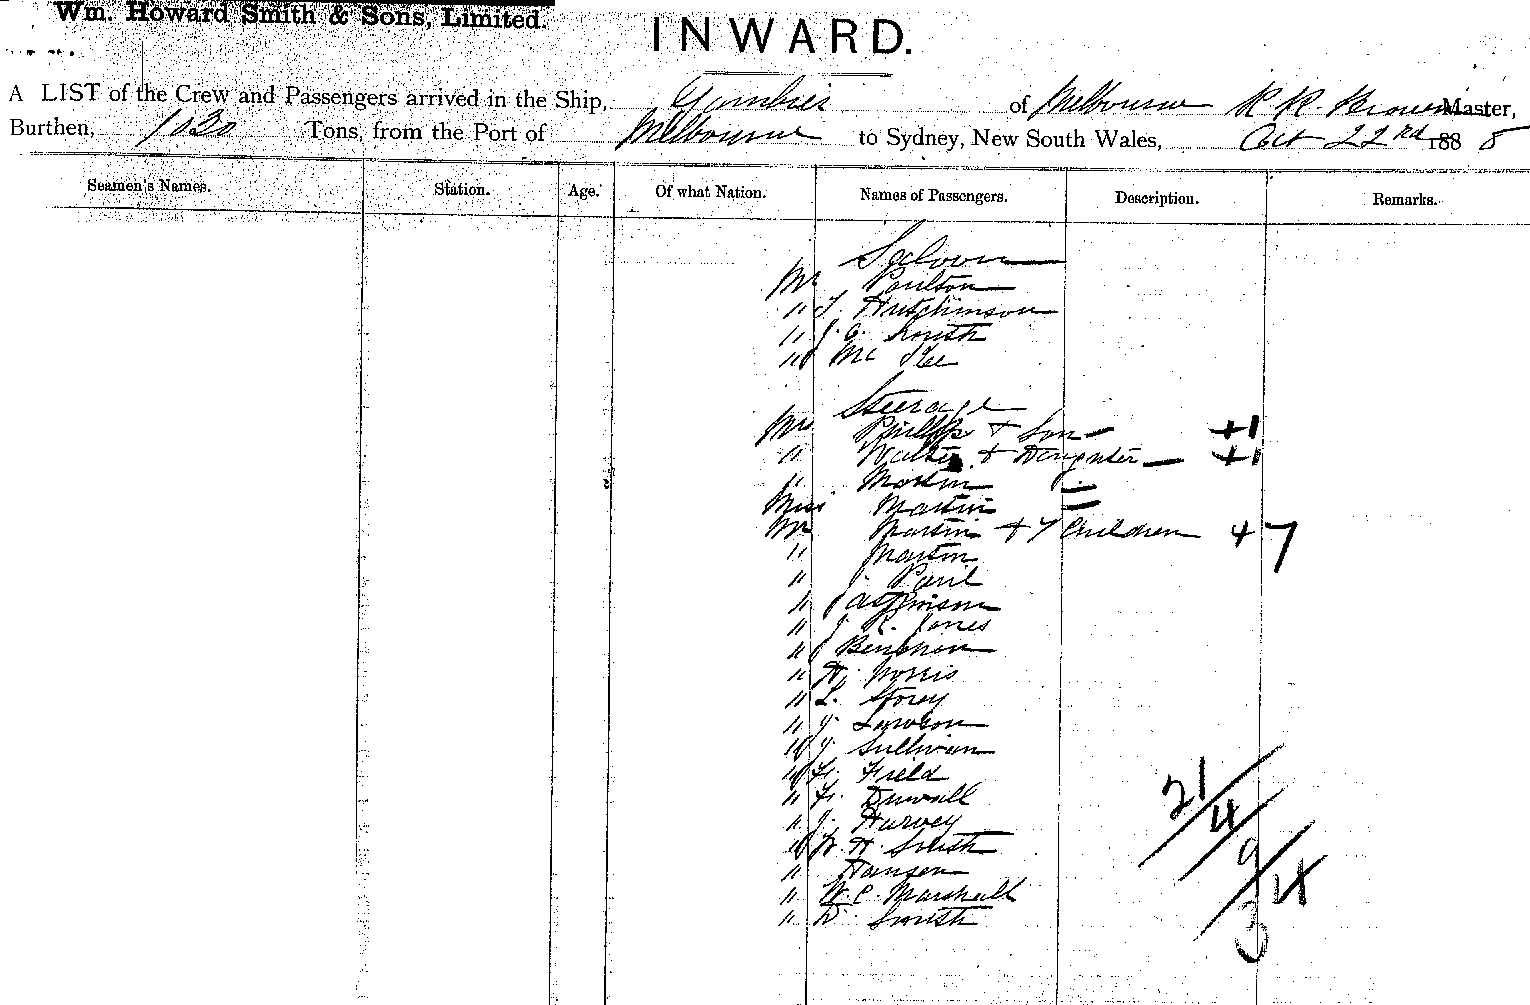 Wm. Howard Smith & Sons, Limited.
INWARD.
A LIST of the Crew and Passengers arrived in the Ship, Gambier of Melbourne R R. Brown Master,
Burthen, 1030 Tons, from the Port of Melbourne to Sydney, New South Wales, Oct 22nd 1888
Seamen's Names. Station. Age. Of what Nation. Names of Passengers. Description. Remarks.
Saloon
Mr Poulton
" T Hutchinson
" J. C. Smith
" Mc Kee
Steerage
Mrs Phillips + Son +1
" Walter + Daughter +1
" Martin
Miss Martin
Mr Martin + 7 Children +7
" Martin
" J. Paul
"
" J. R. Jones
"
" H. Norris
" L. Storey
" J. Lawson
" J. Sullivan
" F. Field
" F.
" J. Harvey
" W. H. Smith
" Hansen
" W. C. Marshall
" D. Smith
21/4/9/4
3